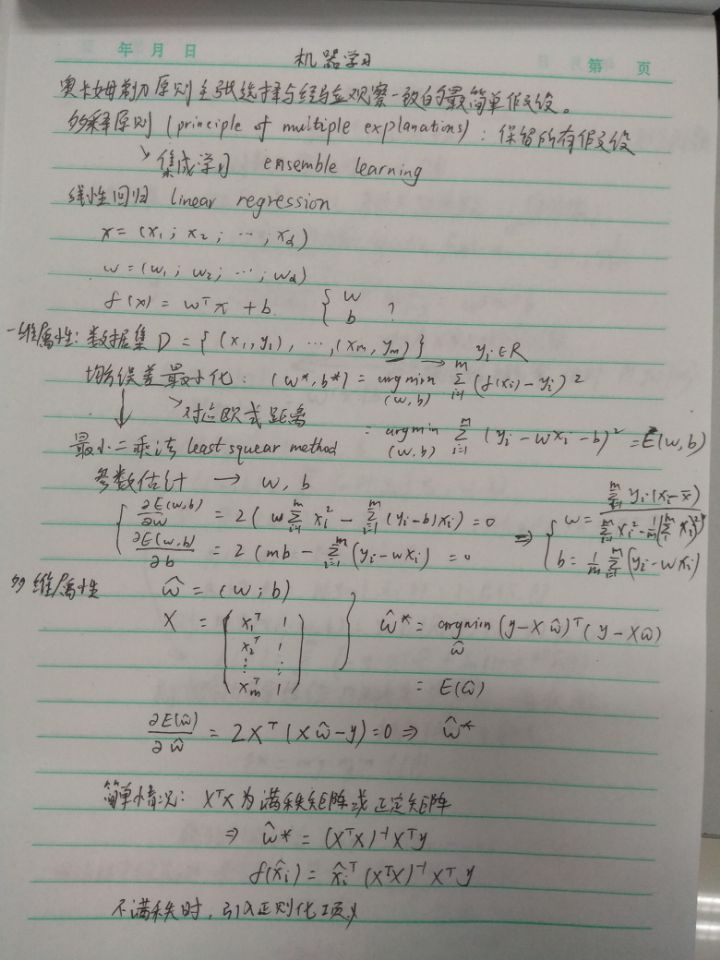 年 月 日
第 页
机器学习
奥卡姆剃刀原则主张选择与经验观察一致的最简单假设。
多释原则 (principle of multiple explanations) : 保留所有假设
↘ 集成学习 ensemble learning
线性回归 linear regression
x = (x₁ ; x₂ ; … ; x_d)
w = (w₁ ; w₂ ; … ; w_d)
f(x) = wᵀx + b { w b ?
一维属性: 数据集 D = { (x₁, y₁) , … , (x_m, y_m) } → y_i ∈ R
均方误差最小化: (w*, b*) = argmin_(w,b) Σ_{i=1}^m (f(x_i) - y_i)²
↘ 对应欧式距离
= argmin_(w,b) Σ_{i=1}^m (y_i - wx_i - b)² = E(w,b)
↓ 最小二乘法 least squear method
参数估计 → w, b
{ ∂E(w,b)/∂w = 2( w Σ_{i=1}^m x_i² - Σ_{i=1}^m (y_i - b)x_i) = 0
∂E(w,b)/∂b = 2(mb - Σ_{i=1}^m (y_i - wx_i) = 0
⇒ { w = Σ_{i=1}^m y_i·(x_i - x̄) / Σ_{i=1}^m x_i² - 1/m(Σ_{i=1}^m x_i)²
b = 1/m Σ_{i=1}^m (y_i - wx_i)
多维属性 ŵ = (w ; b)
X = ( x₁ᵀ 1
x₂ᵀ 1
⋮ ⋮
x_mᵀ 1 )
} ŵ* = argmin_ŵ (y - Xŵ)ᵀ(y - Xŵ)
= E(ŵ)
∂E(ŵ)/∂ŵ = 2Xᵀ(Xŵ - y) = 0 ⇒ ŵ*
简单情况: XᵀX 为满秩矩阵或正定矩阵
⇒ ŵ* = (XᵀX)⁻¹Xᵀy
f(x̂_i) = x̂_iᵀ(XᵀX)⁻¹Xᵀy
不满秩时, 引入正则化项